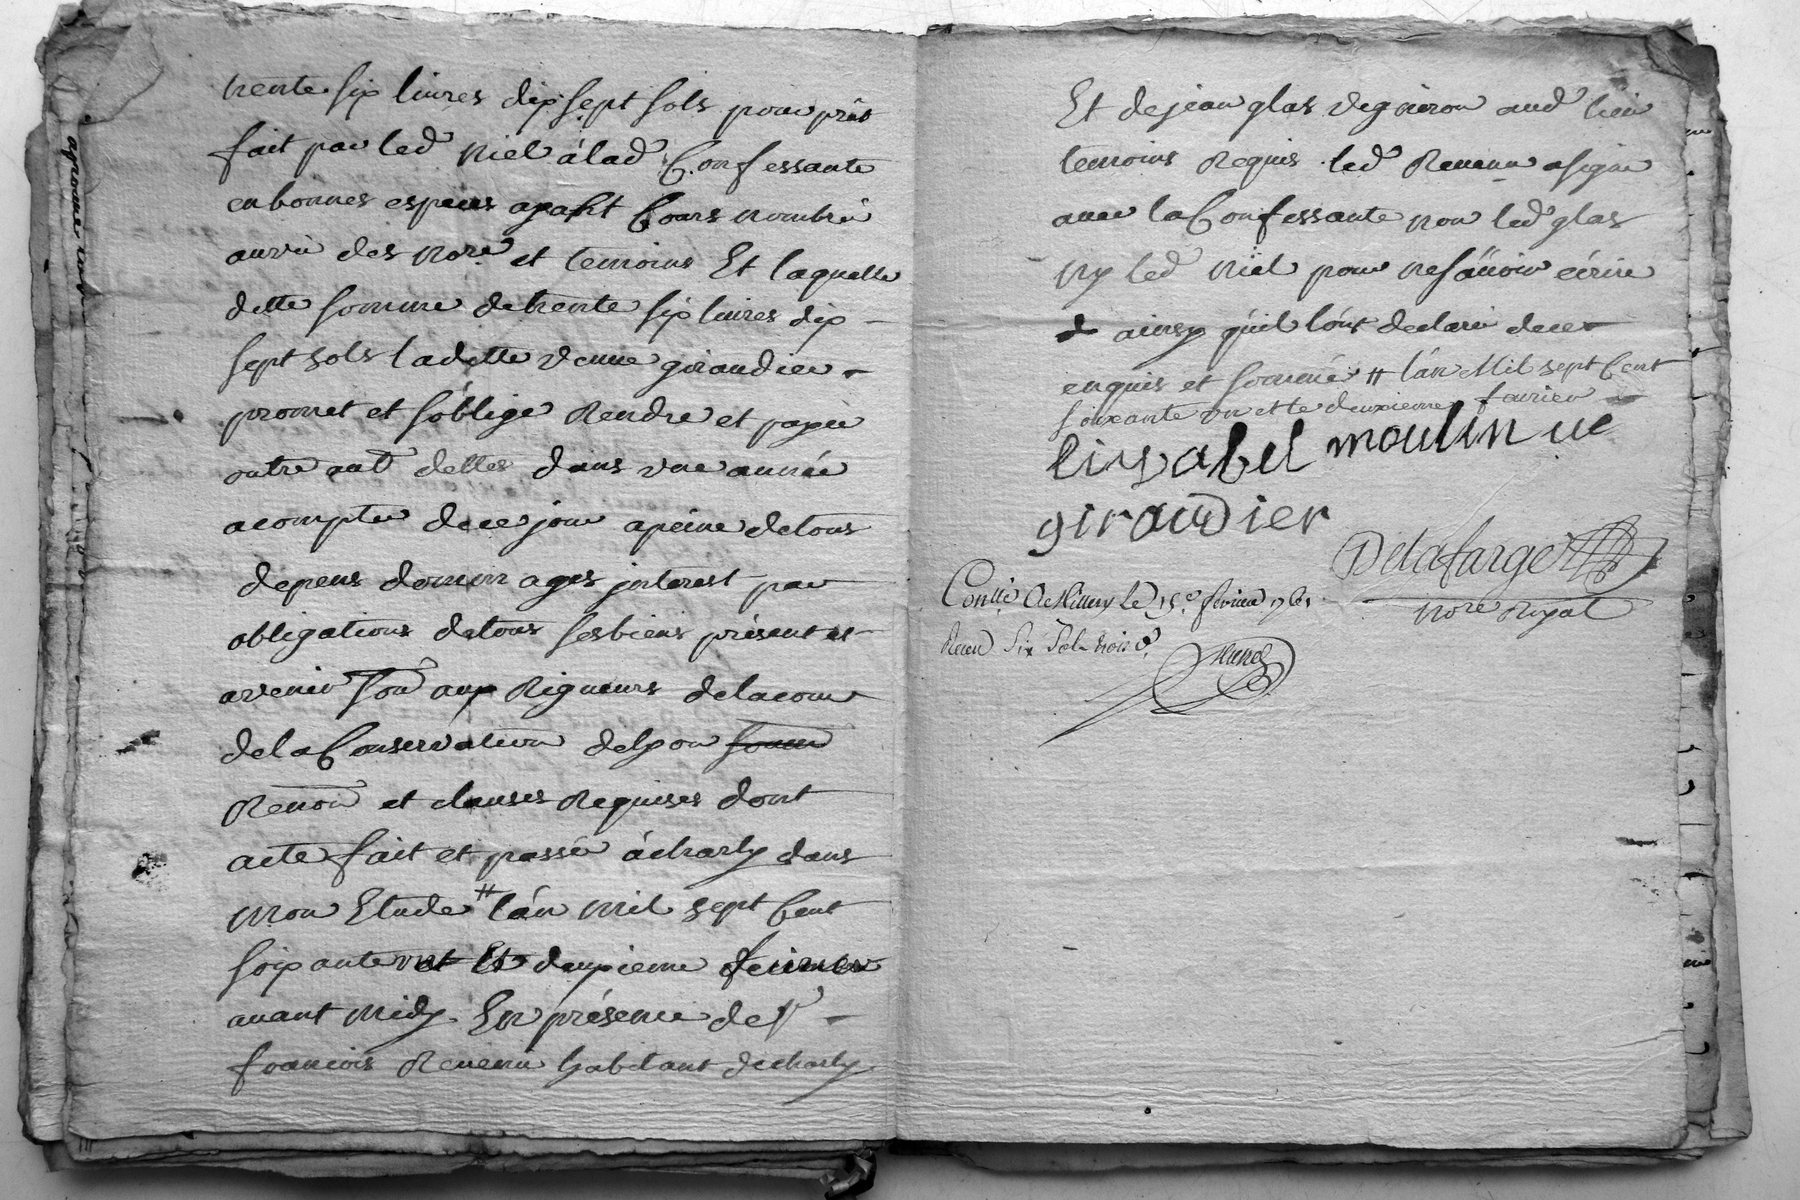 trente six livres dix sept sols pour prêt
fait par led. Niel à lad. Confessante
en bonnes especes ayant Cours nombré
au vu des nore. et temoins Et laquelle
ditte somme de trente six livres dix
sept sols ladette veuve giraudier
promet et s'oblige Rendre et payer
outre aut. dettes dans une année
a compter de ce jour a peine de tous
depens dommages interest par
obligations de tous ses biens présent et
avenir aux Rigueurs de la cour
de la Conservation de Lyon
Renon et clauses Requises dont
acte fait et passé à charly dans
mon Etude # l'an mil sept Cent
soixante deuxieme
avant midy. En présence de Sr.
francois Revenu habitant de charly
Et de jean glas vigneron aud. lieu
temoins Requis. led. Revenu a signé
avec la Confessante non led. glas
ny led. Niel pour ne sávoir écrire
ainsy qu'il l'ont declaré de ce
enquis et sommé # l'an Mil sept Cent
soixante un et le deuxieme fevrier
lisabel moulin ue
giraudier
Delafarge
nore Royal
Conllé. A Millery Le 15e. fevrier 1761
Recu Six Sols trois d.